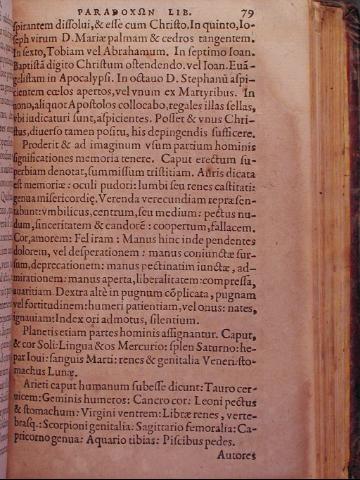 PARADOXΩN LIB. 79
spirantem dissolui, & esse cum Christo. In quinto, Io-
seph virum D. Mariæ palmam & cedros tangentem.
In sexto, Tobiam vel Abrahamum. In septimo Ioan.
Baptistã digito Christum ostendendo. vel Ioan. Euã-
gelistam in Apocalypsi. In octauo D. Stephanũ aspi-
cientem cœlos apertos, vel vnum ex Martyribus. In
nono, aliquot Apostolos collocabo, regales illas sellas,
vbi iudicaturi sunt, aspicientes. Posset & vnus Chri-
stus, diuerso tamen positu, his depingendis sufficere.
Proderit & ad imaginum vsum partium hominis
significationes memoria tenere. Caput erectum su-
perbiam denotat, summissum tristitiam. Auris dicata
est memoriæ: oculi pudori: lumbi seu renes castitati:
genua misericordię. Verenda verecundiam repræsen-
tabunt: vmbilicus, centrum, seu medium: pectus nu-
dum, sinceritatem & candorẽ: coopertum, fallacem.
Cor, amorem: Fel iram: Manus hinc inde pendentes
dolorem, vel desperationem: manus coniunctæ sur-
sum, deprecationem: manus pectinatim iunctæ, ad-
mirationem: manus aperta, liberalitatem: compressa,
auaritiam. Dextra altè in pugnum cõplicata, pugnam
vel fortitudinem: humeri patientiam, vel onus: nates,
ignauiam: Index ori admotus, silentium.
Planetis etiam partes hominis assignantur. Caput,
& cor Soli: Lingua & os Mercurio: splen Saturno: he-
par Ioui: sanguis Marti: renes & genitalia Veneri: sto-
machus Lunæ.
Arieti caput humanum subesse dicunt: Tauro cer-
uicem: Geminis humeros: Cancro cor: Leoni pectus
& stomachum: Virgini ventrem: Libræ renes, verte-
brasq́;: Scorpioni genitalia: Sagittario femoralia: Ca-
pricorno genua: Aquario tibias: Piscibus pedes.
Autores